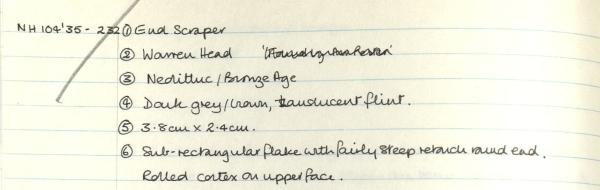 NH 104'35 - 232 ① End Scraper
② Warren Head
③ Neolithic / Bronze Age
④ Dark grey/brown, translucent flint.
⑤ 3.8cm x 2.4cm.
⑥ Sub-rectangular flake with fairly steep retouch round end.
Rolled cortex on upper face.